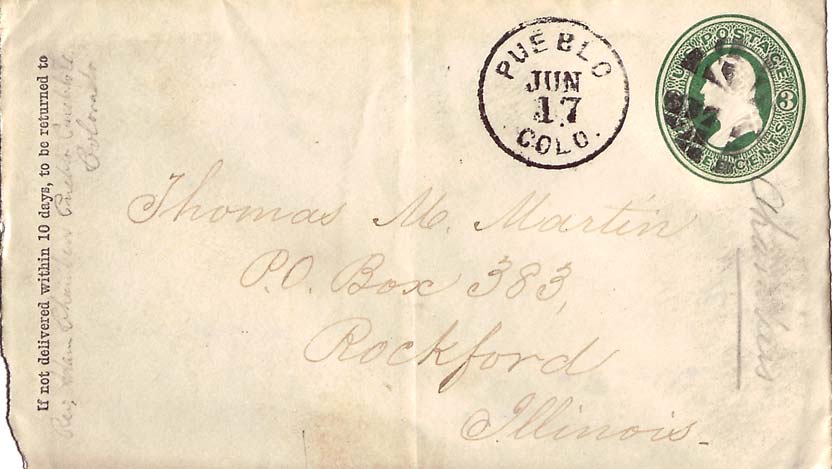 If not delivered within 10 days, to be returned to
Colorado
PUEBLO
JUN
17
COLO.
U.S. POSTAGE
3
THREE CENTS
Thomas M. Martin
P.O. Box 383,
Rockford
Illinois.